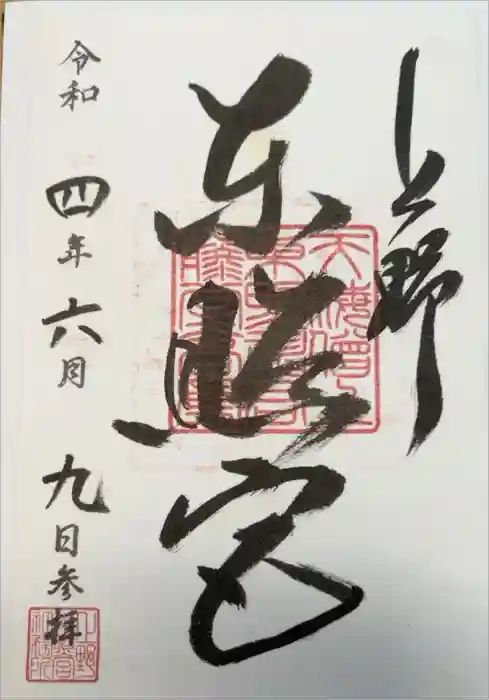 上野
東照宮
令和四年六月九日参拝